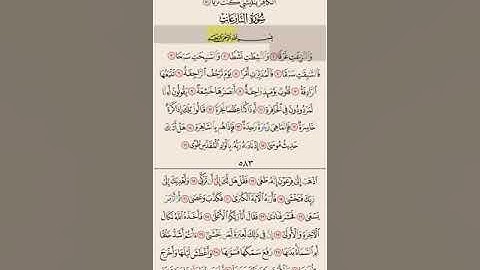 الكافر يليتني كنت ترابا
سورة النازعات
بسم الله الرحمن الرحيم
والنازعات غرقا ١ والناشطات نشطا ٢ والسابحات سبحا ٣
فالسابقات سبقا ٤ فالمدبرات أمرا ٥ يوم ترجف الراجفة ٦ تتبعها
الرادفة ٧ قلوب يومئذ واجفة ٨ أبصارها خاشعة ٩ يقولون أءنا
لمردودون في الحافرة ١٠ أءذا كنا عظاما نخرة ١١ قالوا تلك إذا كرة
خاسرة ١٢ فإنما هي زجرة واحدة ١٣ فإذا هم بالساهرة ١٤ هل أتىك
حديث موسى ١٥ إذ نادىه ربه بالواد المقدس طوى ١٦
٥٨٣
اذهب إلى فرعون إنه طغى ١٧ فقل هل لك إلى أن تزكى ١٨ وأهديك إلى
ربك فتخشى ١٩ فأرىه الآية الكبرى ٢٠ فكذب وعصى ٢١ ثم أدبر
يسعى ٢٢ فحشر فنادى ٢٣ فقال أنا ربكم الأعلى ٢٤ فأخذه الله نكال
الآخرة والأولى ٢٥ إن في ذلك لعبرة لمن يخشى ٢٦ ءأنتم أشد خلقا
أم السماء بنىها ٢٧ رفع سمكها فسوىها ٢٨ وأغطش ليلها وأخرج